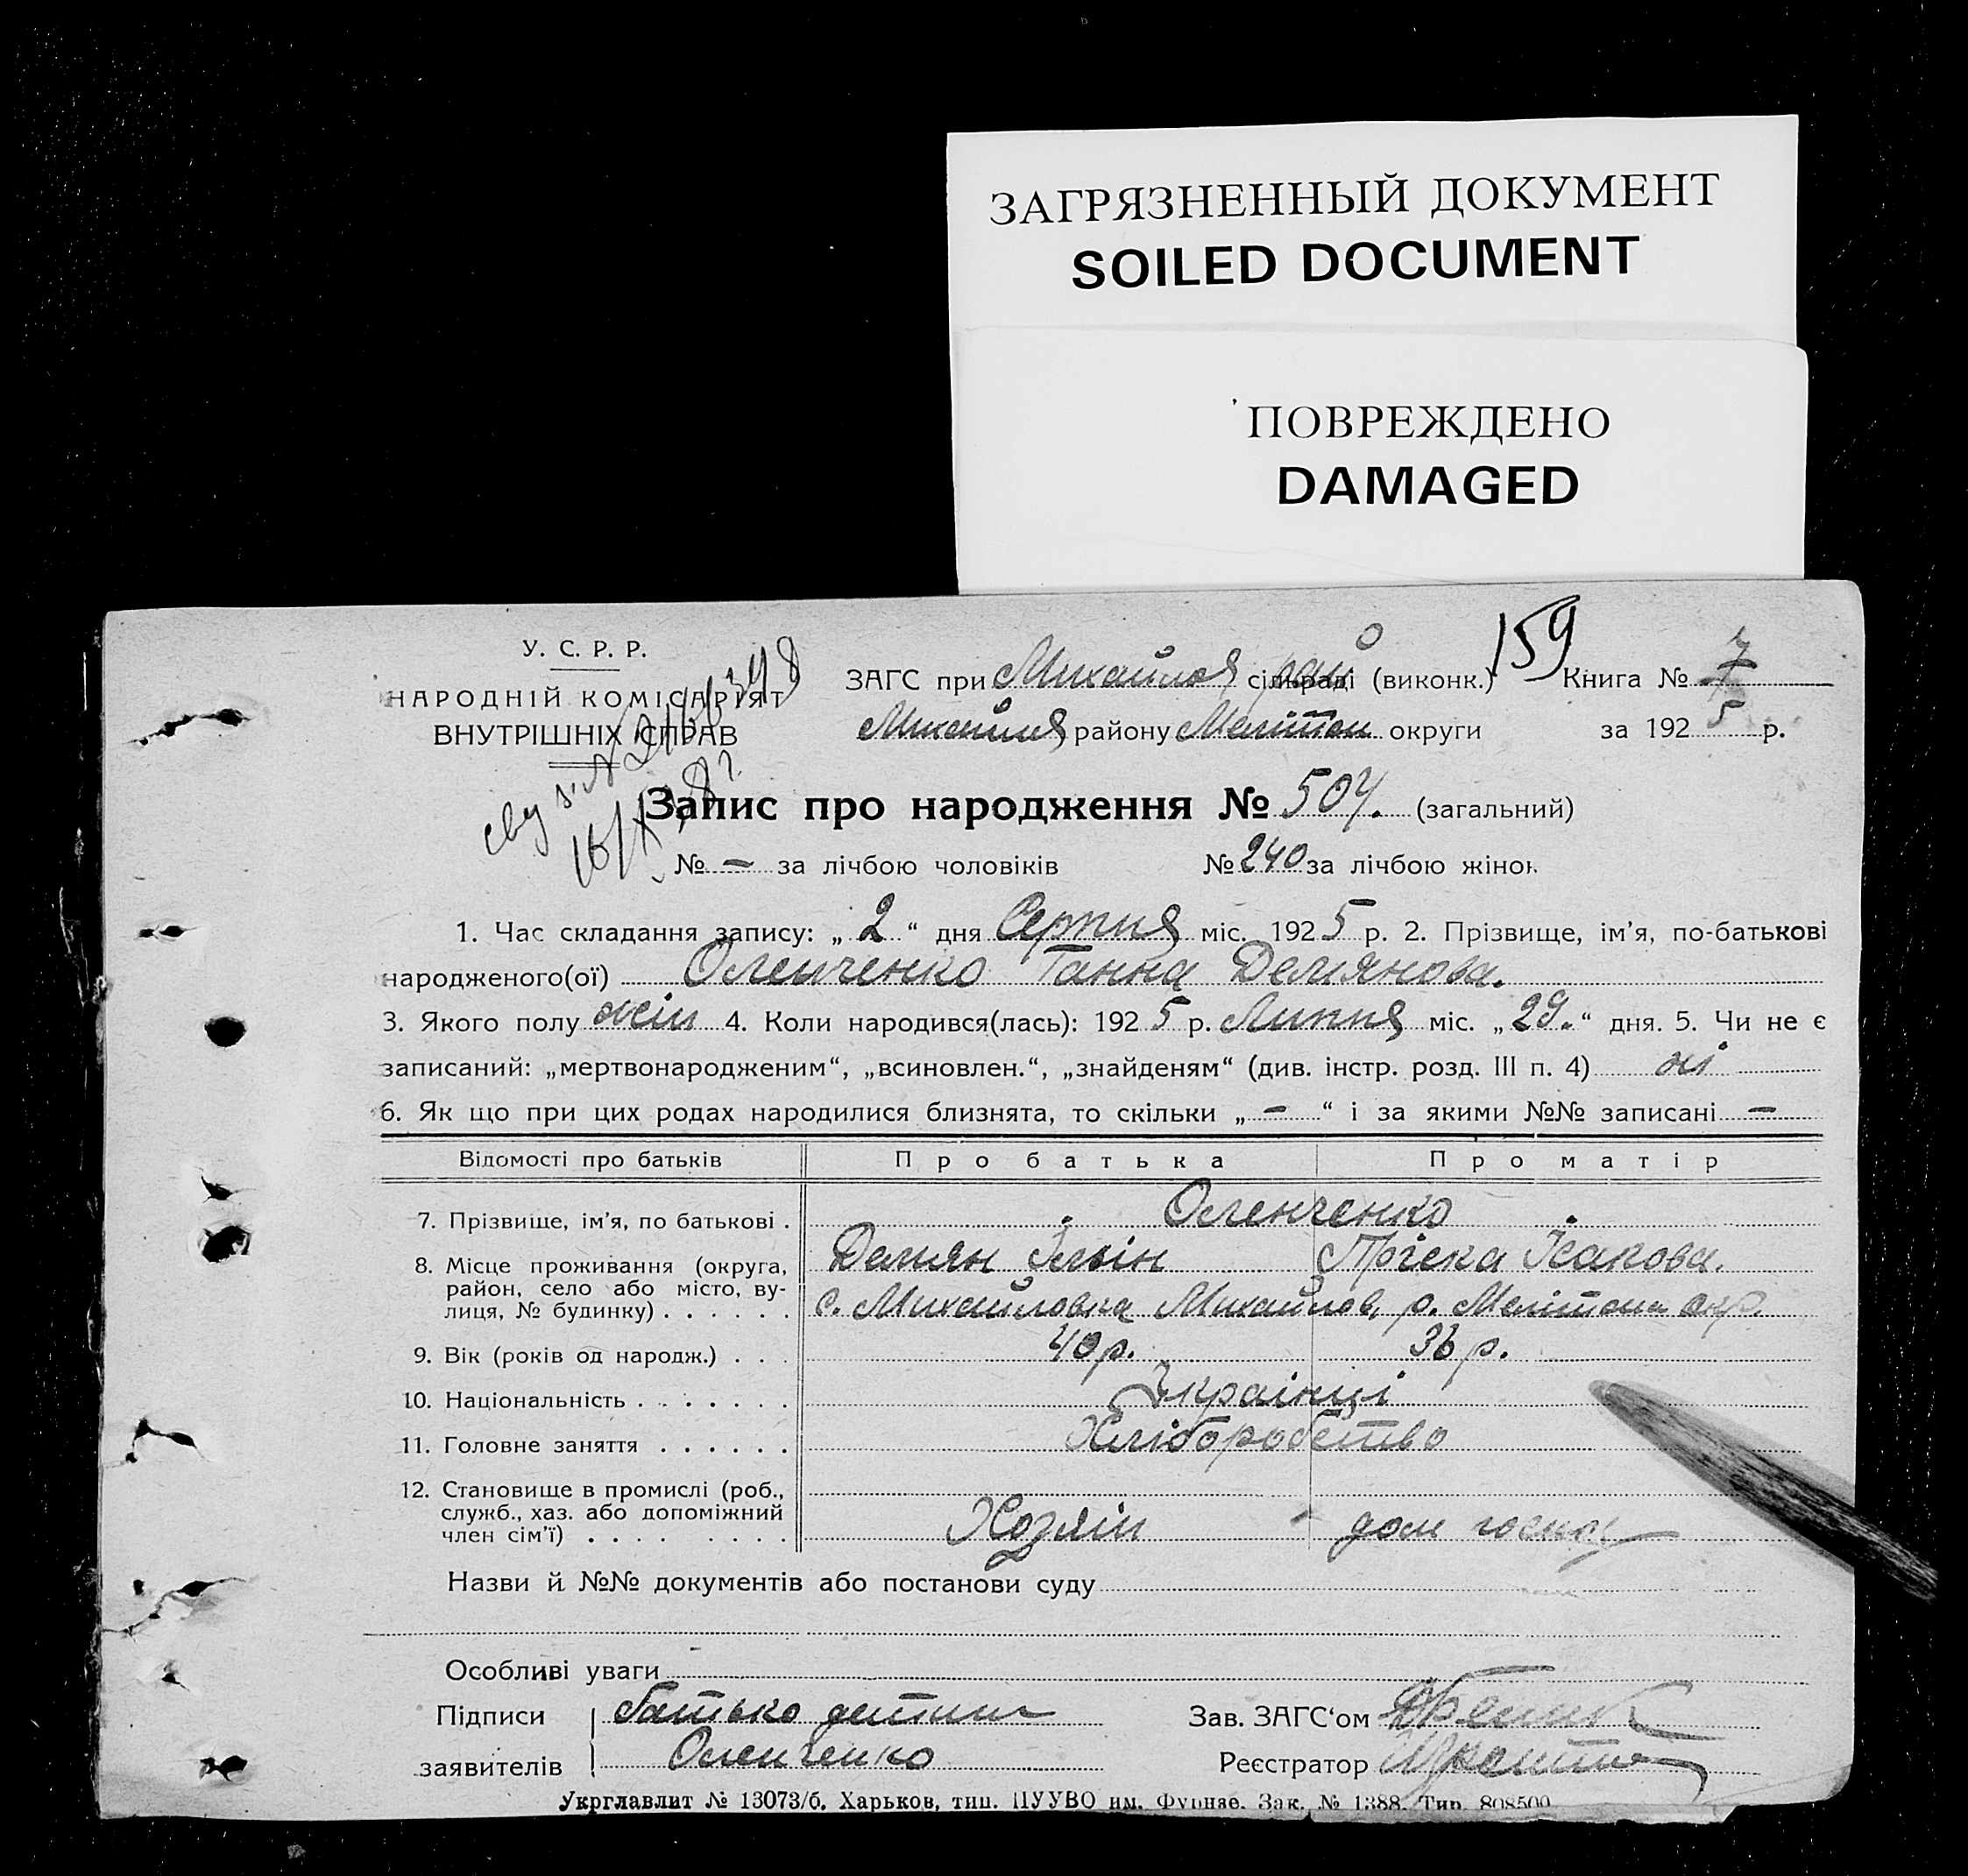 ЗАГРЯЗНЕННЫЙ ДОКУМЕНТ
SOILED DOCUMENT
ПОВРЕЖДЕНО
DAMAGED
159
У. С. Р. Р.
НАРОДНІЙ КОМІСАРІЯТ
ВНУТРІШНІХ СПРАВ
ЗАГС при Михайлов рай сільраді (виконк.) Книга № 7
Михайлів району Мелітоп округи за 1925 р.
Запис про народження № 504. (загальний)
№ – за лічбою чоловіків № 240 за лічбою жінок
1. Час складання запису: „2“ дня Серпня міс. 1925 р. 2. Прізвище, ім’я, по-батькові
народженого(ої) Оленченко Ганна Демянова.
3. Якого полу жін 4. Коли народився(лась): 1925 р. Липня міс. „29.“ дня. 5. Чи не є
записаний: „мертвонародженим“, „всиновлен.“, „знайденям“ (див. інстр. розд. III п. 4) ні
6. Як що при цих родах народилися близнята, то скільки „–“ і за якими №№ записані –
Відомості про батьків Про батька Про матір
7. Прізвище, ім’я, по батькові . Оленченко
8. Місце проживання (округа, Демян Ільін Пріска Ісакова.
район, село або місто, ву-
лиця, № будинку) . . . . . . с. Михайловка Михайлов, р. Мелітоп окр.
9. Вік (років од народж.) . . . 40 р. 36 р.
10. Національність . . . . . . . Українці
11. Головне заняття . . . . . . Хліборобство
12. Становище в промислі (роб.,
служб., хаз. або допоміжний
член сім’ї) . . . . . . . . Хозяїн дом госпо
Назви й №№ документів або постанови суду
Особливі уваги
Підписи батько детини Зав. ЗАГС‘ом
заявителів Оленченко Реєстратор
Укрглавлит № 13073/б. Харьков, тип. ЦУУВО им. Фрунзе. Зак. № 1388. Тир. 808500